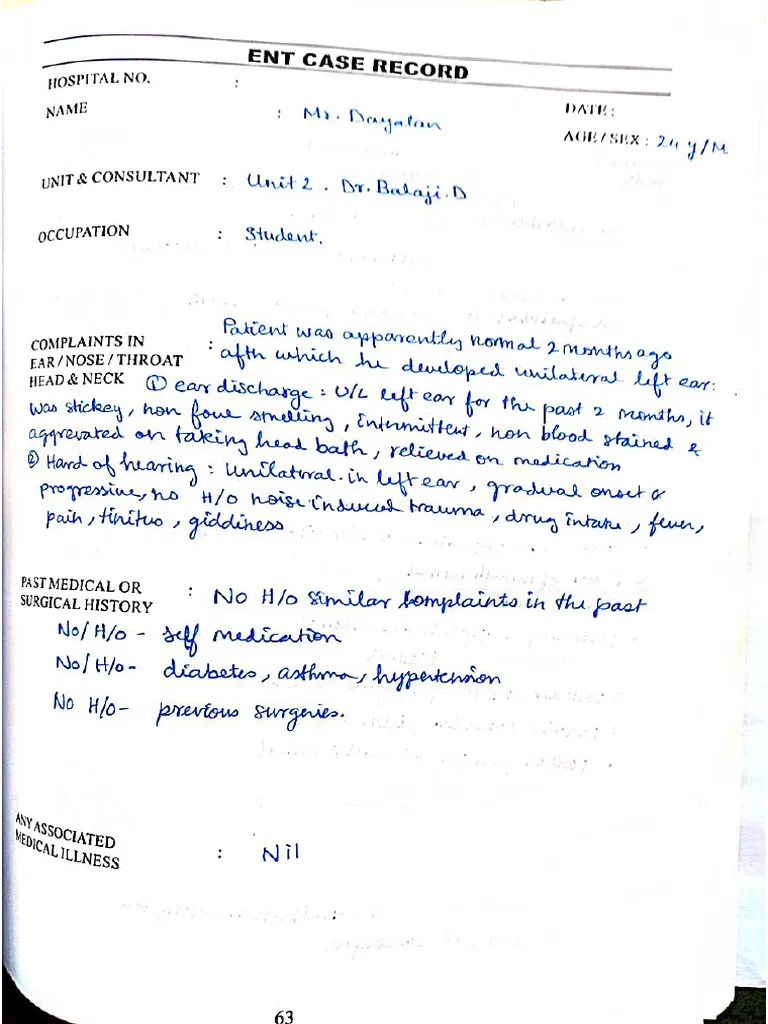 ENT CASE RECORD
HOSPITAL NO. :
NAME : Mr. Dayalan DATE :
AGE / SEX : 24 y/M
UNIT & CONSULTANT : Unit 2 . Dr. Balaji. D
OCCUPATION : Student.
COMPLAINTS IN EAR / NOSE / THROAT HEAD & NECK :
Patient was apparently normal 2 months ago
afth which he developed unilateral left ear:
① ear discharge : U/L left ear for the past 2 months, it
was stickey, non foul smelling, intermittent, non blood stained &
aggrevated on taking head bath, relieved on medication
② Hard of hearing : Unilateral. in left ear, gradual onset &
progressive, no H/o noise induced trauma, drug intake, fever,
pain, tinitus, giddiness
PAST MEDICAL OR SURGICAL HISTORY : No H/o similar complaints in the past
No/ H/o - self medication
No/ H/o - diabetes, asthma, hypertension
No H/o - previous surgeries.
ANY ASSOCIATED MEDICAL ILLNESS : Nil
63